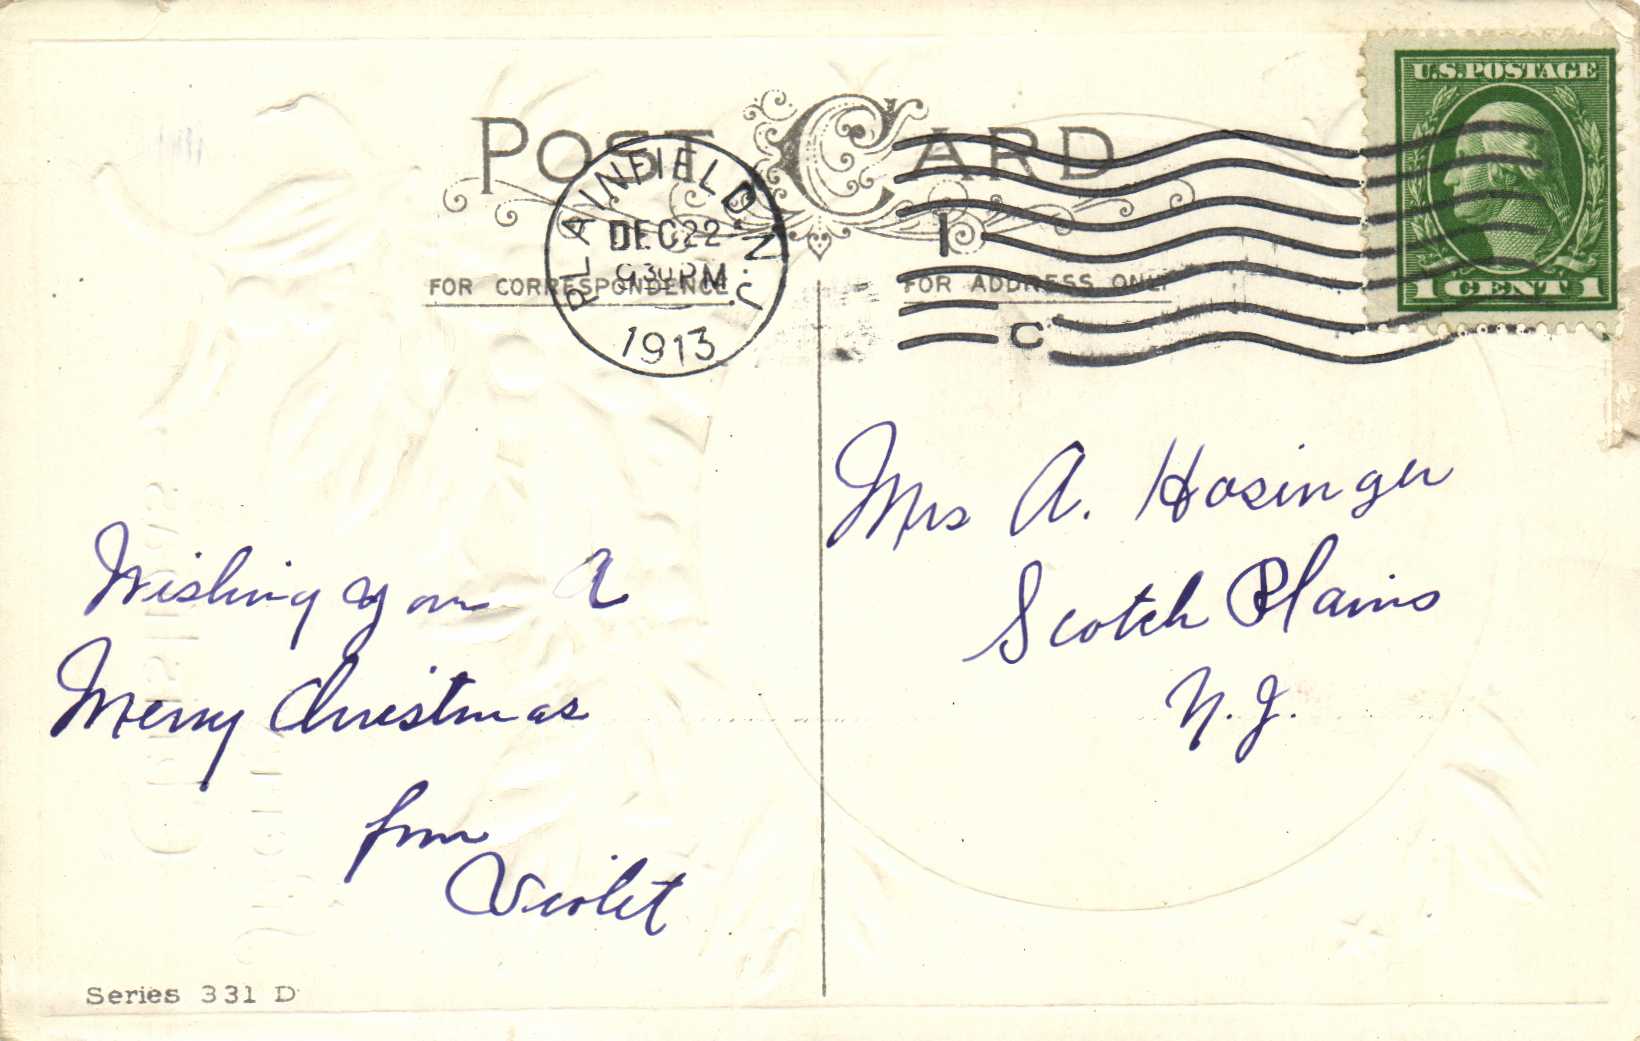 POST CARD
U.S. POSTAGE
1 CENT 1
PLAINFIELD, N.J.
DEC 22
9 30 PM
1913
1
C
FOR CORRESPONDENCE
FOR ADDRESS ONLY
Wishing you A
Merry Christmas
from
Violet
Mrs A. Hosinger
Scotch Plains
N.J.
Series 331 D